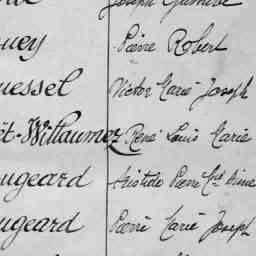 Joseph
uey Pierre Robert
uessel Victor Marie Joseph
êt-Willaumez René Louis Marie
ugeard Aristide Pierre Cst Aimé
ugeard Pierre Marie Joseph